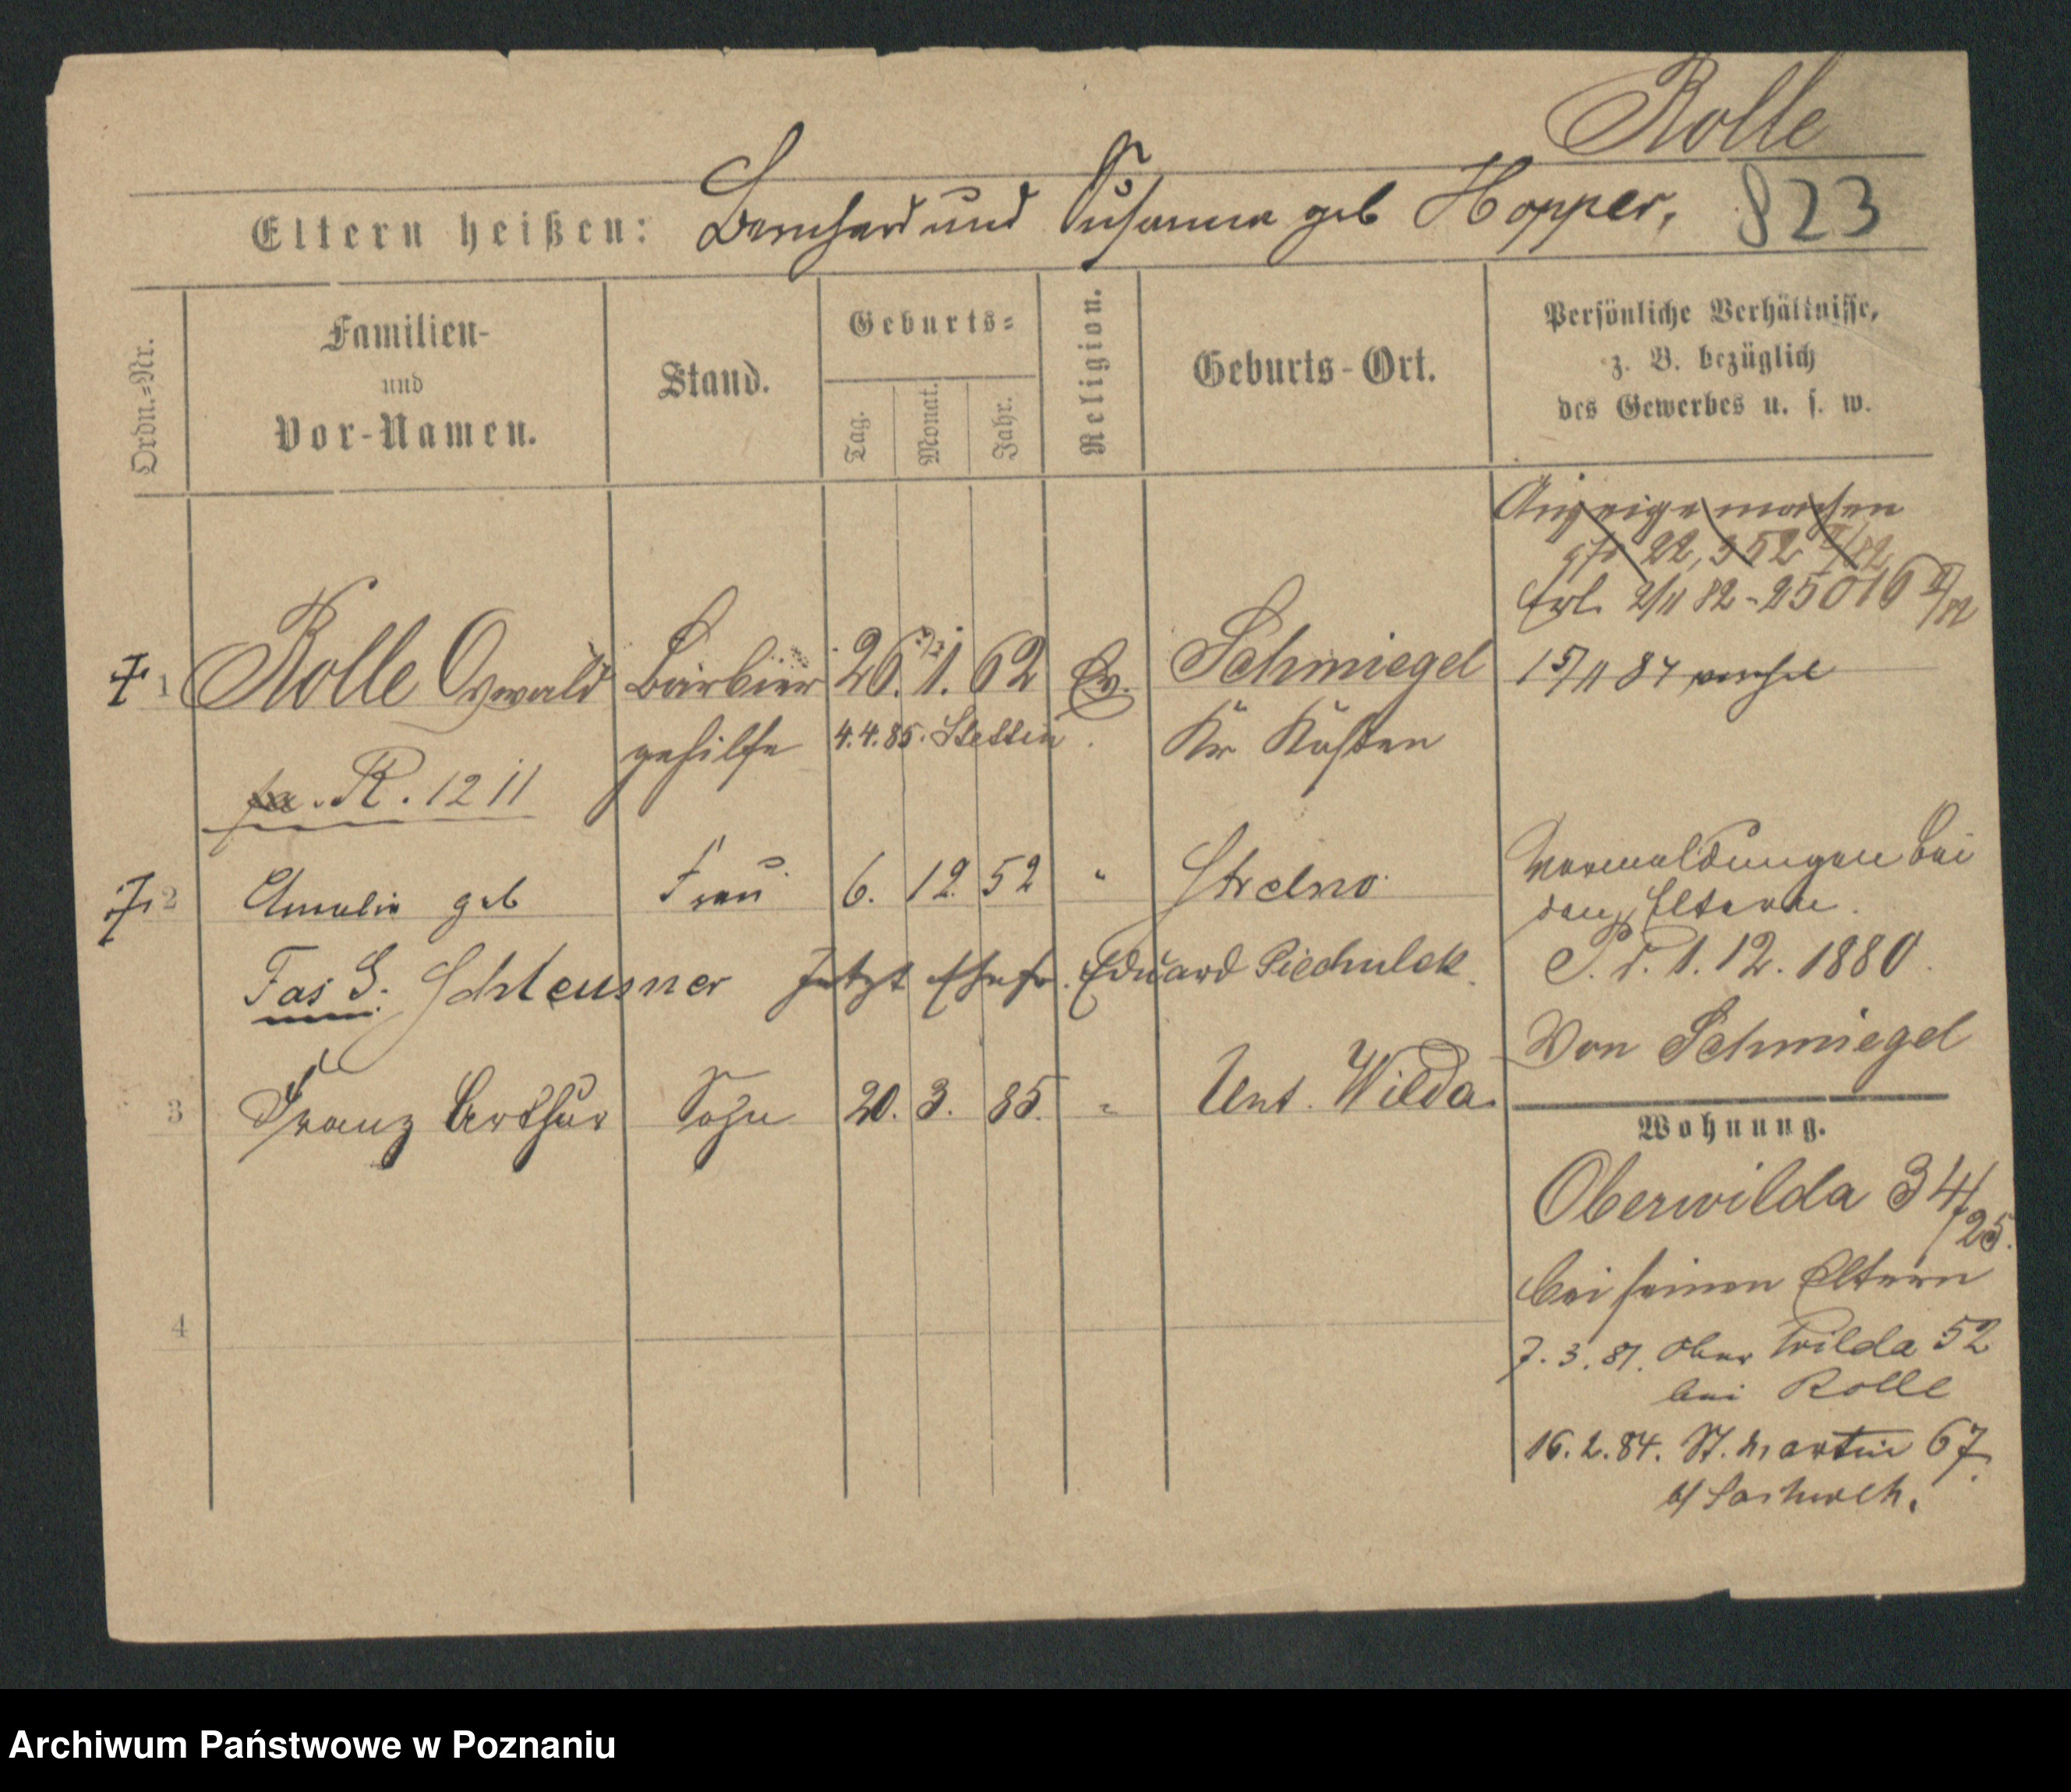 Rolle
Eltern heißen: Bernhard und Susanna geb Hopper, 823
Ordn.=Nr.
Familien-
und
Vor-Namen.
Stand.
Geburts=
Tag.
Monat.
Jahr.
Religion.
Geburts-Ort.
Persönliche Verhältnisse,
z. B. bezüglich
des Gewerbes u. s. w.
Anzeige machen
22,352
Erl. 2/11 82 - 25016
1 Rolle Oswald Barbier 26. 1. 62 Ev. Schmiegel 15/11 84
gehilfe 4.4.85. Stettin Kr Kosten
R. 1211
2 Amalie geb Frau 6. 12. 52 " Strelno
Vermeldungen bei
den Eltern.
Schleusner Jetzt Ehefr. Eduard Piechulek.
1.12.1880
Von Schmiegel
3 Franz Arthur Sohn 20. 3. 85. " Unt. Wilda
Wohnung.
Oberwilda 34/25.
bei seinen Eltern
4
7.3.81. Ober Wilda 52
bei Rolle
16.2.84. St. Martin 67.
Archiwum Państwowe w Poznaniu